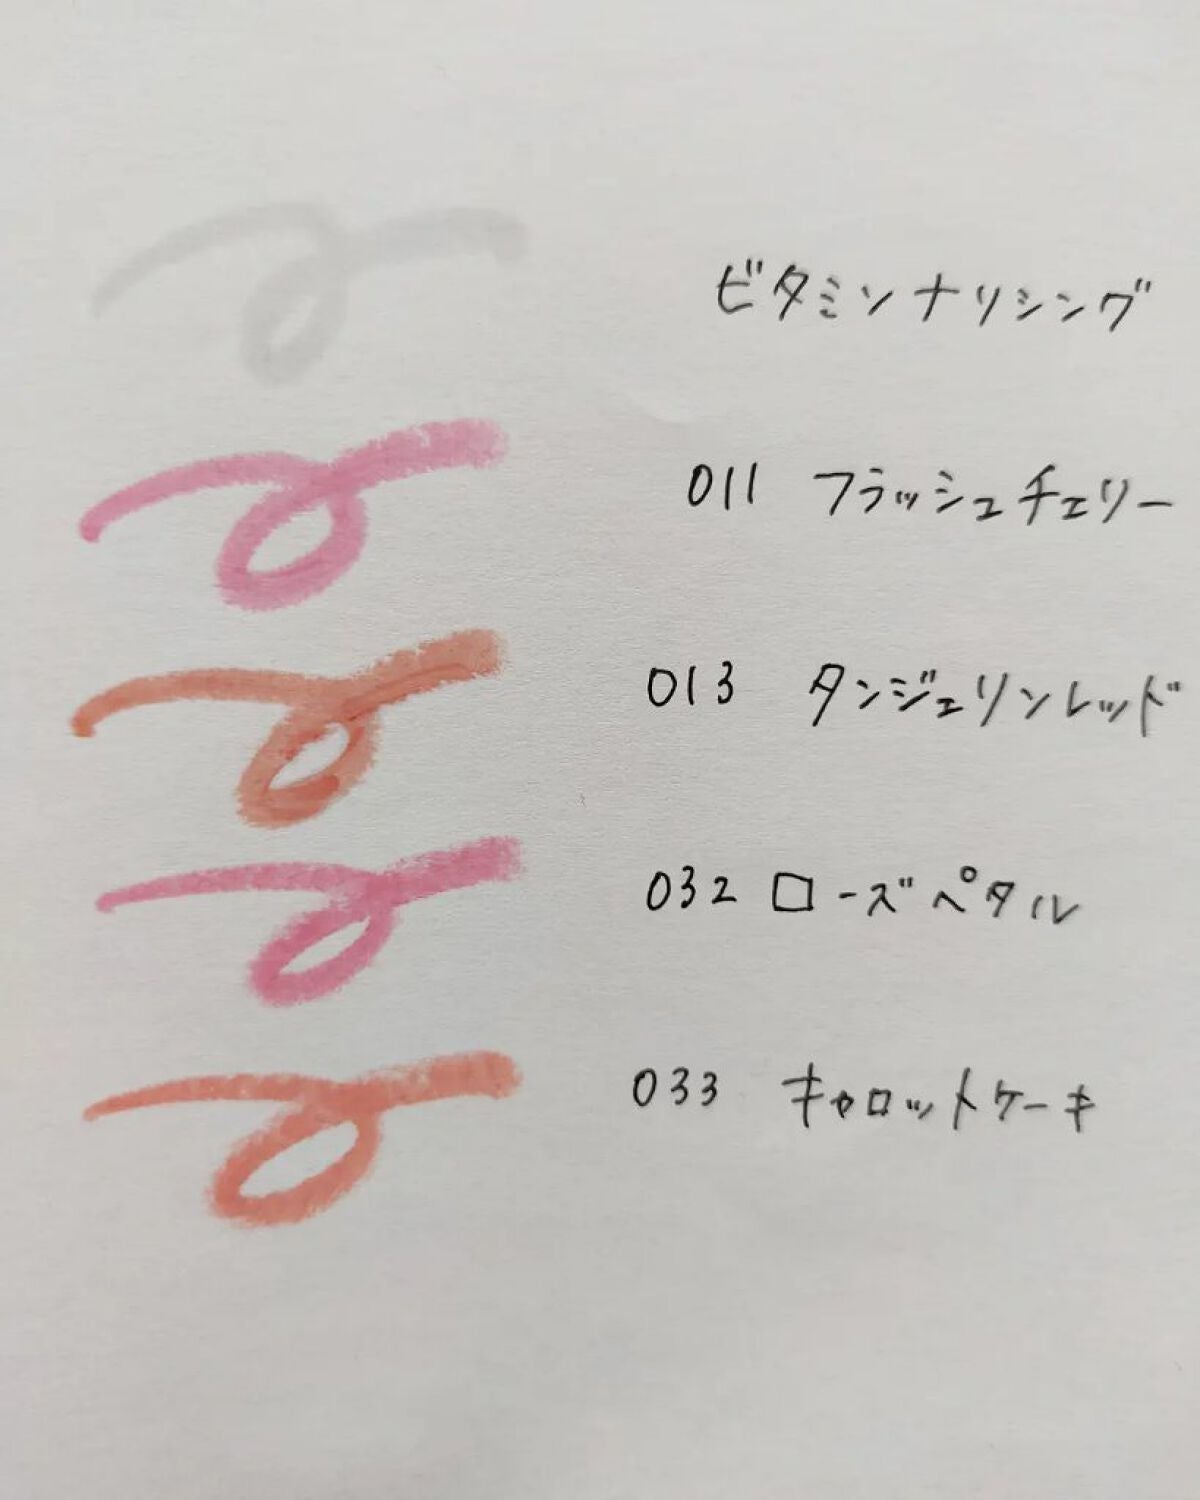 ビタミンナリシング
011 フラッシュチェリー
013 タンジェリンレッド
032 ローズペタル
033 キャロットケーキ